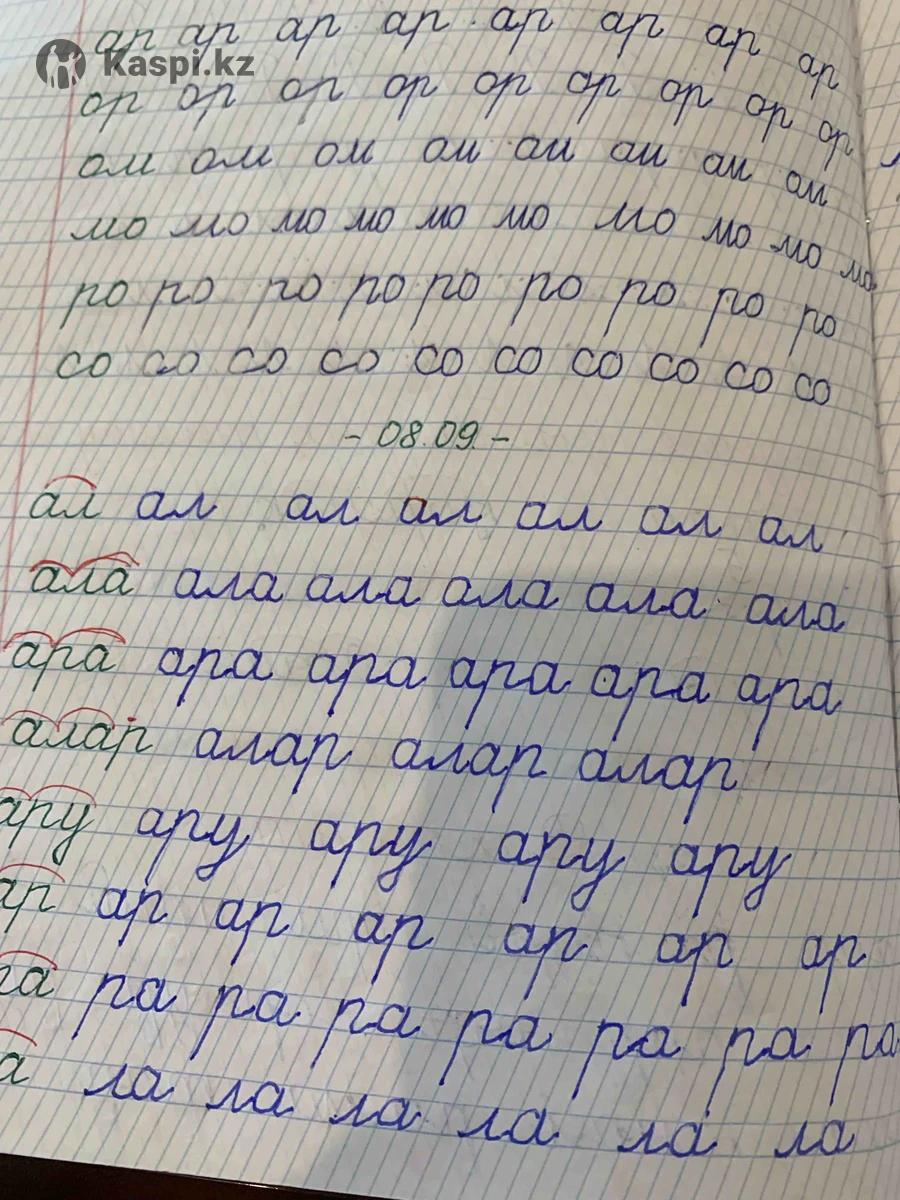 ар ар ар ар ар ар ар ар
Kaspi.kz
ор ор ор ор ор ор ор ор ор
ом ом ом ом ом ом ом ом
мо мо мо мо мо мо мо мо мо мо
ро ро ро ро ро ро ро ро ро
со со со со со со со со со со
- 08.09. -
ал ал ал ал ал ал ал
ала ала ала ала ала ала
ара ара ара ара ара ара
алар алар алар алар
ару ару ару ару ару
ар ар ар ар ар ар ар
ра ра ра ра ра ра ра ра
ла ла ла ла ла ла